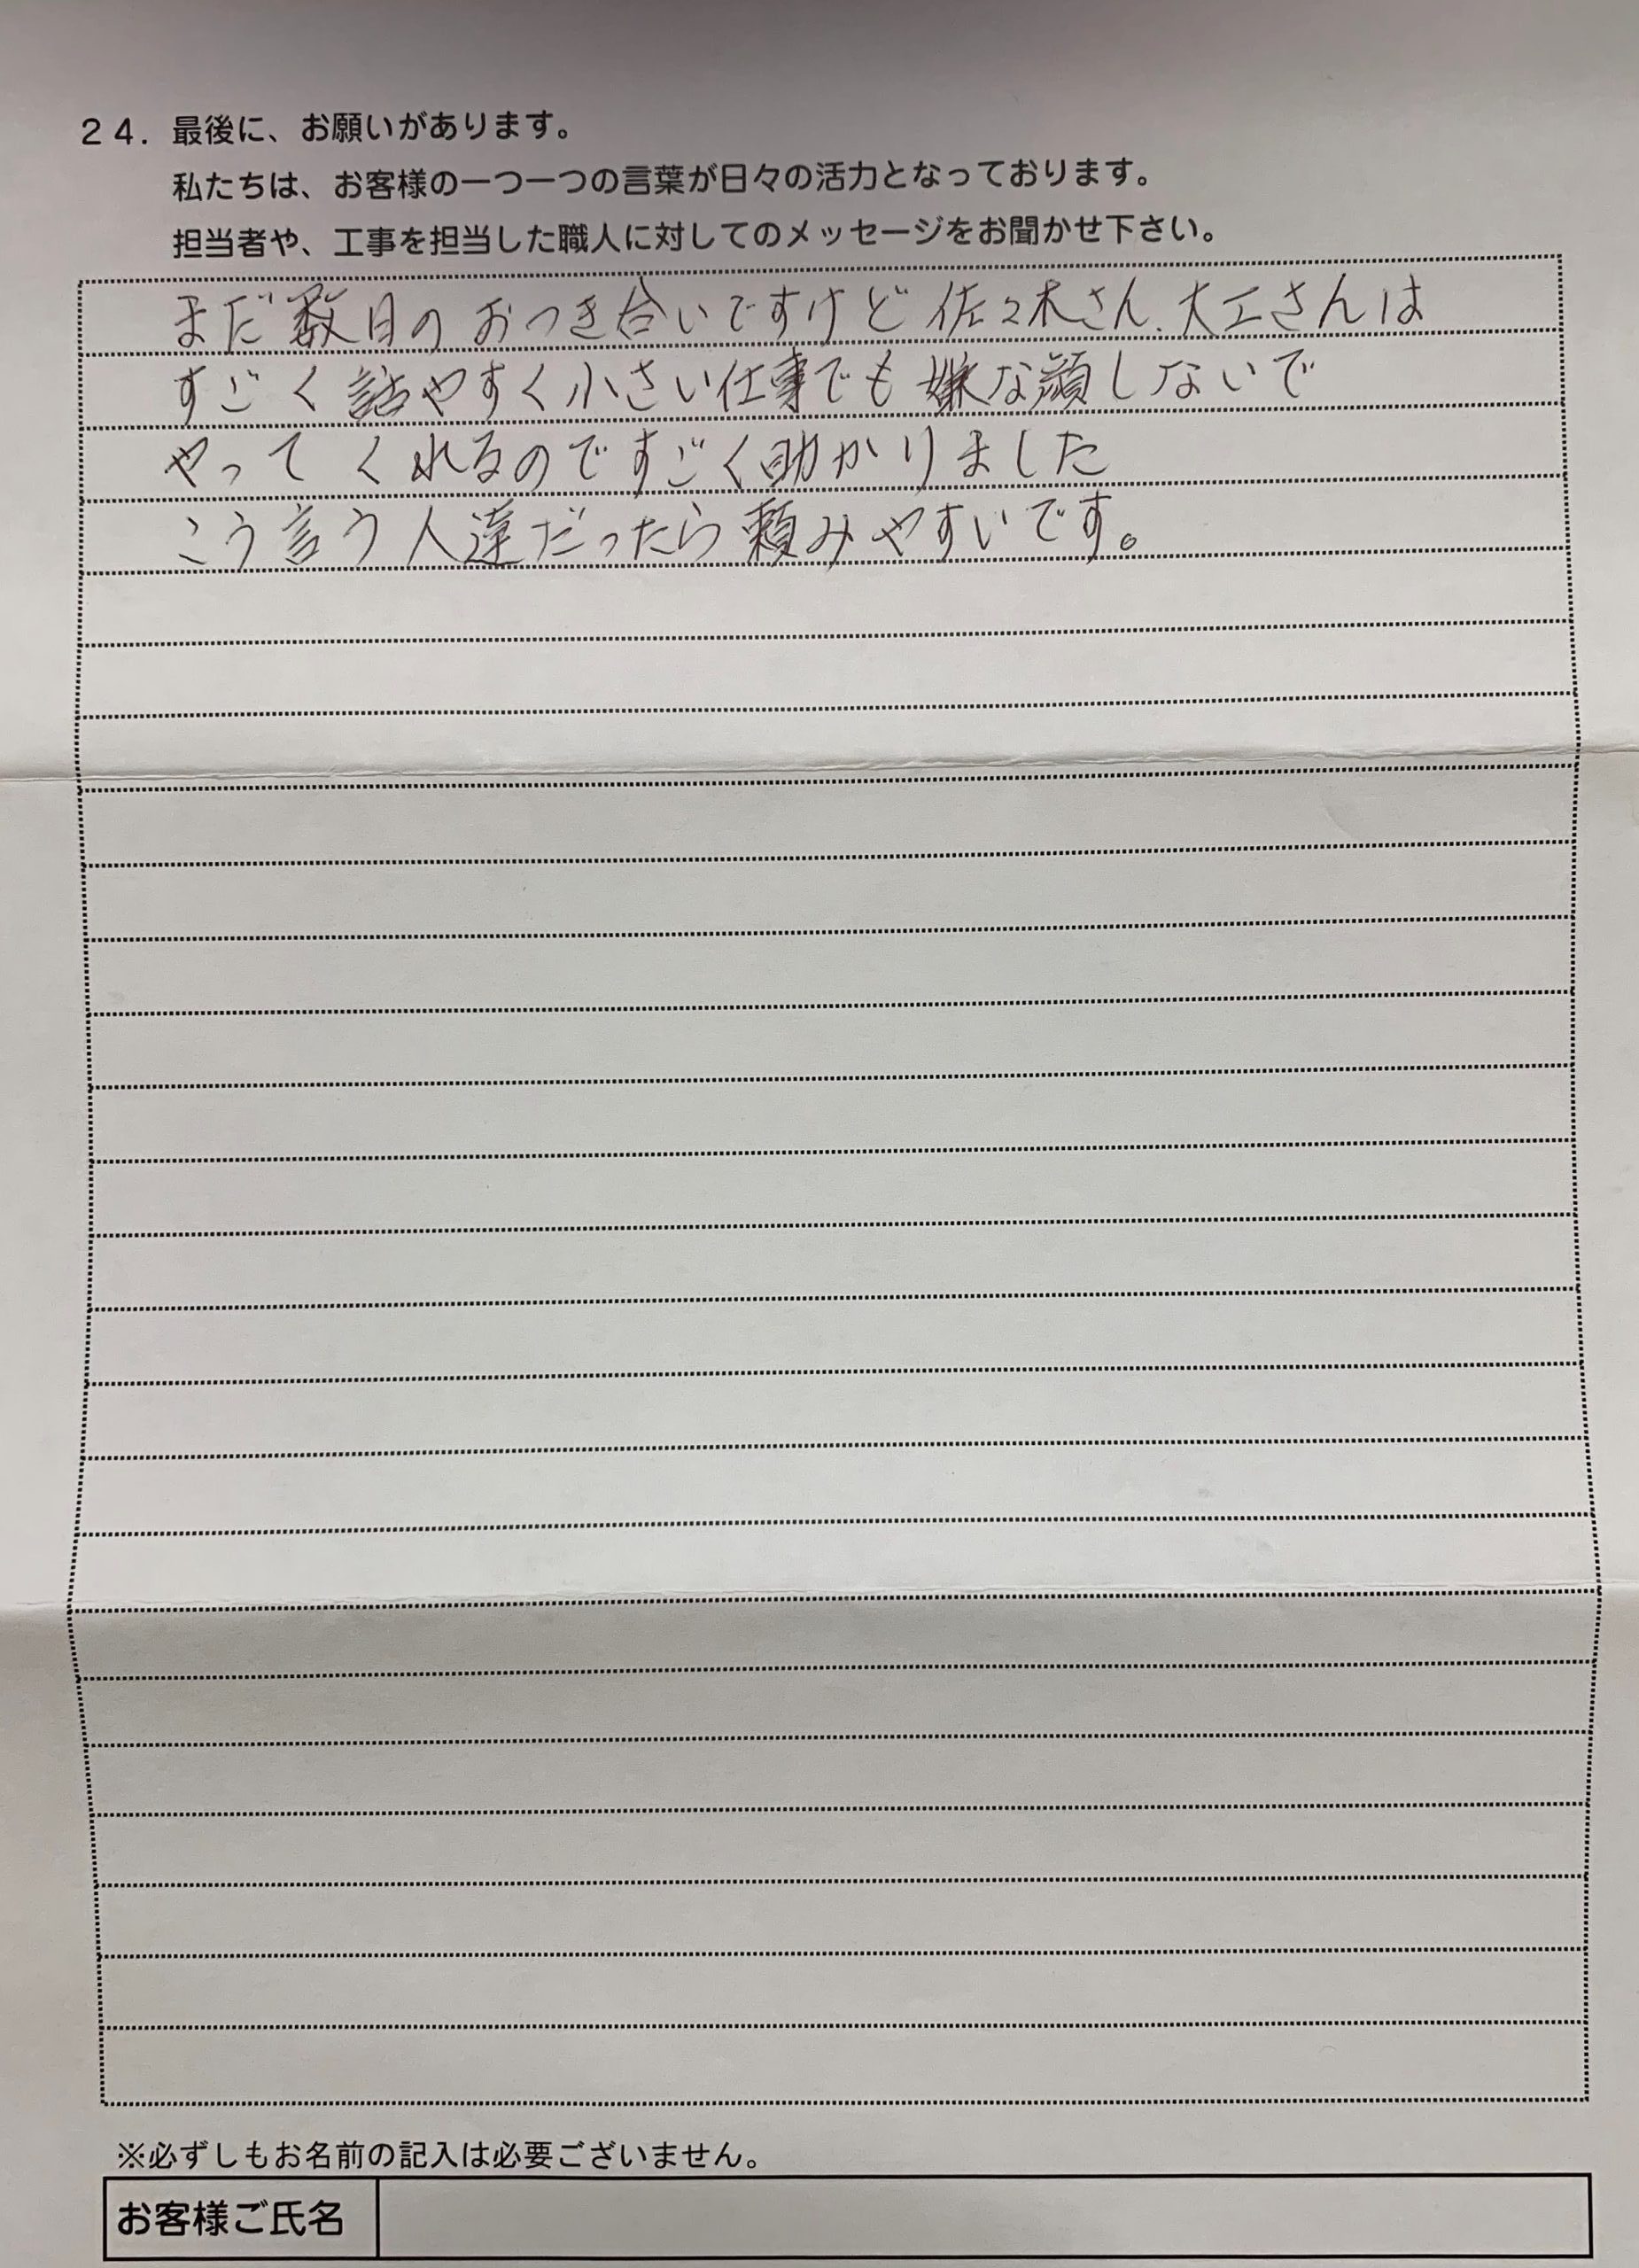 24. 最後に、お願いがあります。
私たちは、お客様の一つ一つの言葉が日々の活力となっております。
担当者や、工事を担当した職人に対してのメッセージをお聞かせ下さい。
まだ数日のおつき合いですけど佐々木さん、大工さんは
すごく話やすく小さい仕事でも嫌な顔しないで
やってくれるのですごく助かりました
こう言う人達だったら頼みやすいです。
※必ずしもお名前の記入は必要ございません。
お客様ご氏名